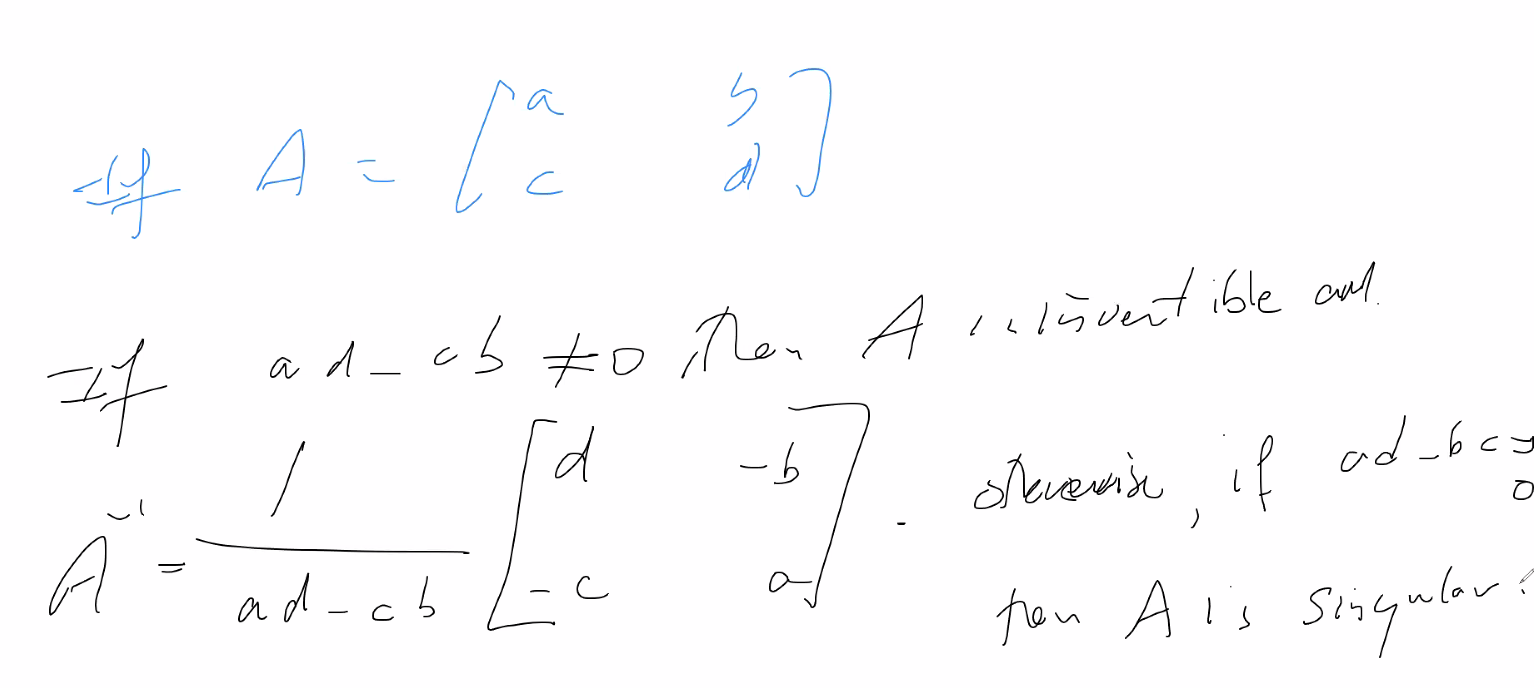 If A = [a b
c d]
If ad - cb ≠ 0, then A is invertible and
A⁻¹ = 1/(ad - cb) [d -b
-c a]. otherwise, if ad - bc = 0
then A is singular.